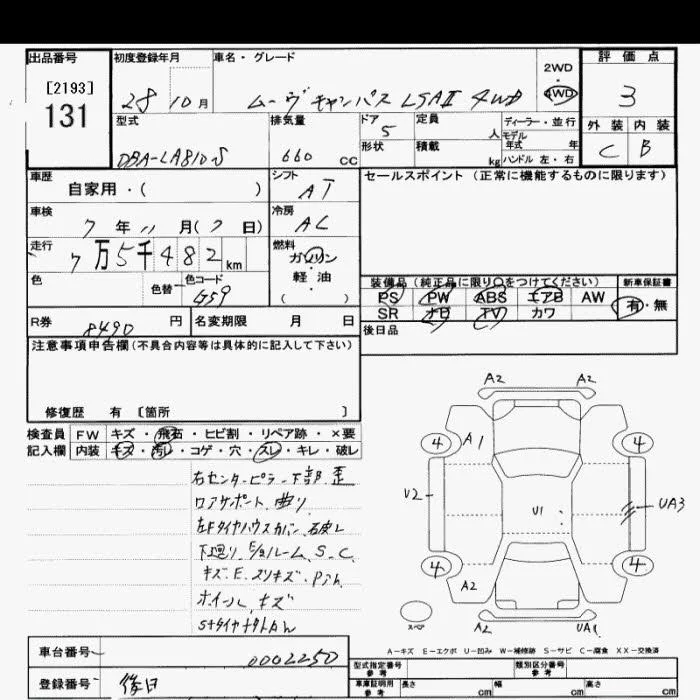 出品番号
[2193]
131
初度登録年月
28 10月
車名・グレード
ムーヴキャンバス LSAⅡ 4WD
2WD
4WD
評価点
3
外装 内装
C B
型式
DBA-LA810S
排気量
660 CC
ドア
5
形状
定員
人
積載
kg
ディーラー・並行
モデル
年式 年
ハンドル 左・右
車歴
自家用・( )
シフト
AT
セールスポイント (正常に機能するものに限ります)
車検
7年11月(7日)
冷房
AC
走行
7万5千482km
燃料
ガソリン
・
軽油
( )
色
色替
色コード
G59
装備品(純正品に限り○をつけてください)
PS PW ABS エアB AW
SR ナビ TV カワ
新車保証書
有・無
R券
8490円
名変期限 月 日
後日品
注意事項申告欄(不具合内容等は具体的に記入して下さい)
修復歴 有 [箇所 ]
検査員 FW キズ・飛石・ヒビ割・リペア跡・×要
記入欄 内装 キズ・汚レ・コゲ・穴・スレ・キレ・破レ
右センターピラー下部歪
ロアサポート 曲り
左Fタイヤハウスカバー 破レ
下廻り、E/gルーム、S、C
キズ・E・スリキズ・
ホイール キズ
A2 A2
4 A1 4
V2 U1 UA3
4 A2 4
スペア A2 UA1
A-キズ E-エクボ U-凹み W-補修跡 S-サビ C-腐食 XX-交換済
車台番号
0002250
登録番号
後日
型式指定番号
参考
類別区分番号
参考
車庫証明用
参考
長さ cm 幅 cm 高さ cm